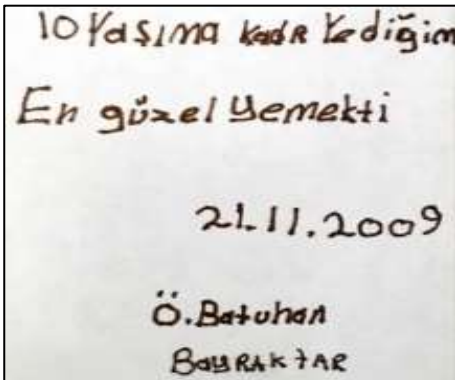 10 Yaşıma kadR Yediğim
En güzel Yemekti
21.11.2009
Ö.Batuhan
BayRAKtAR